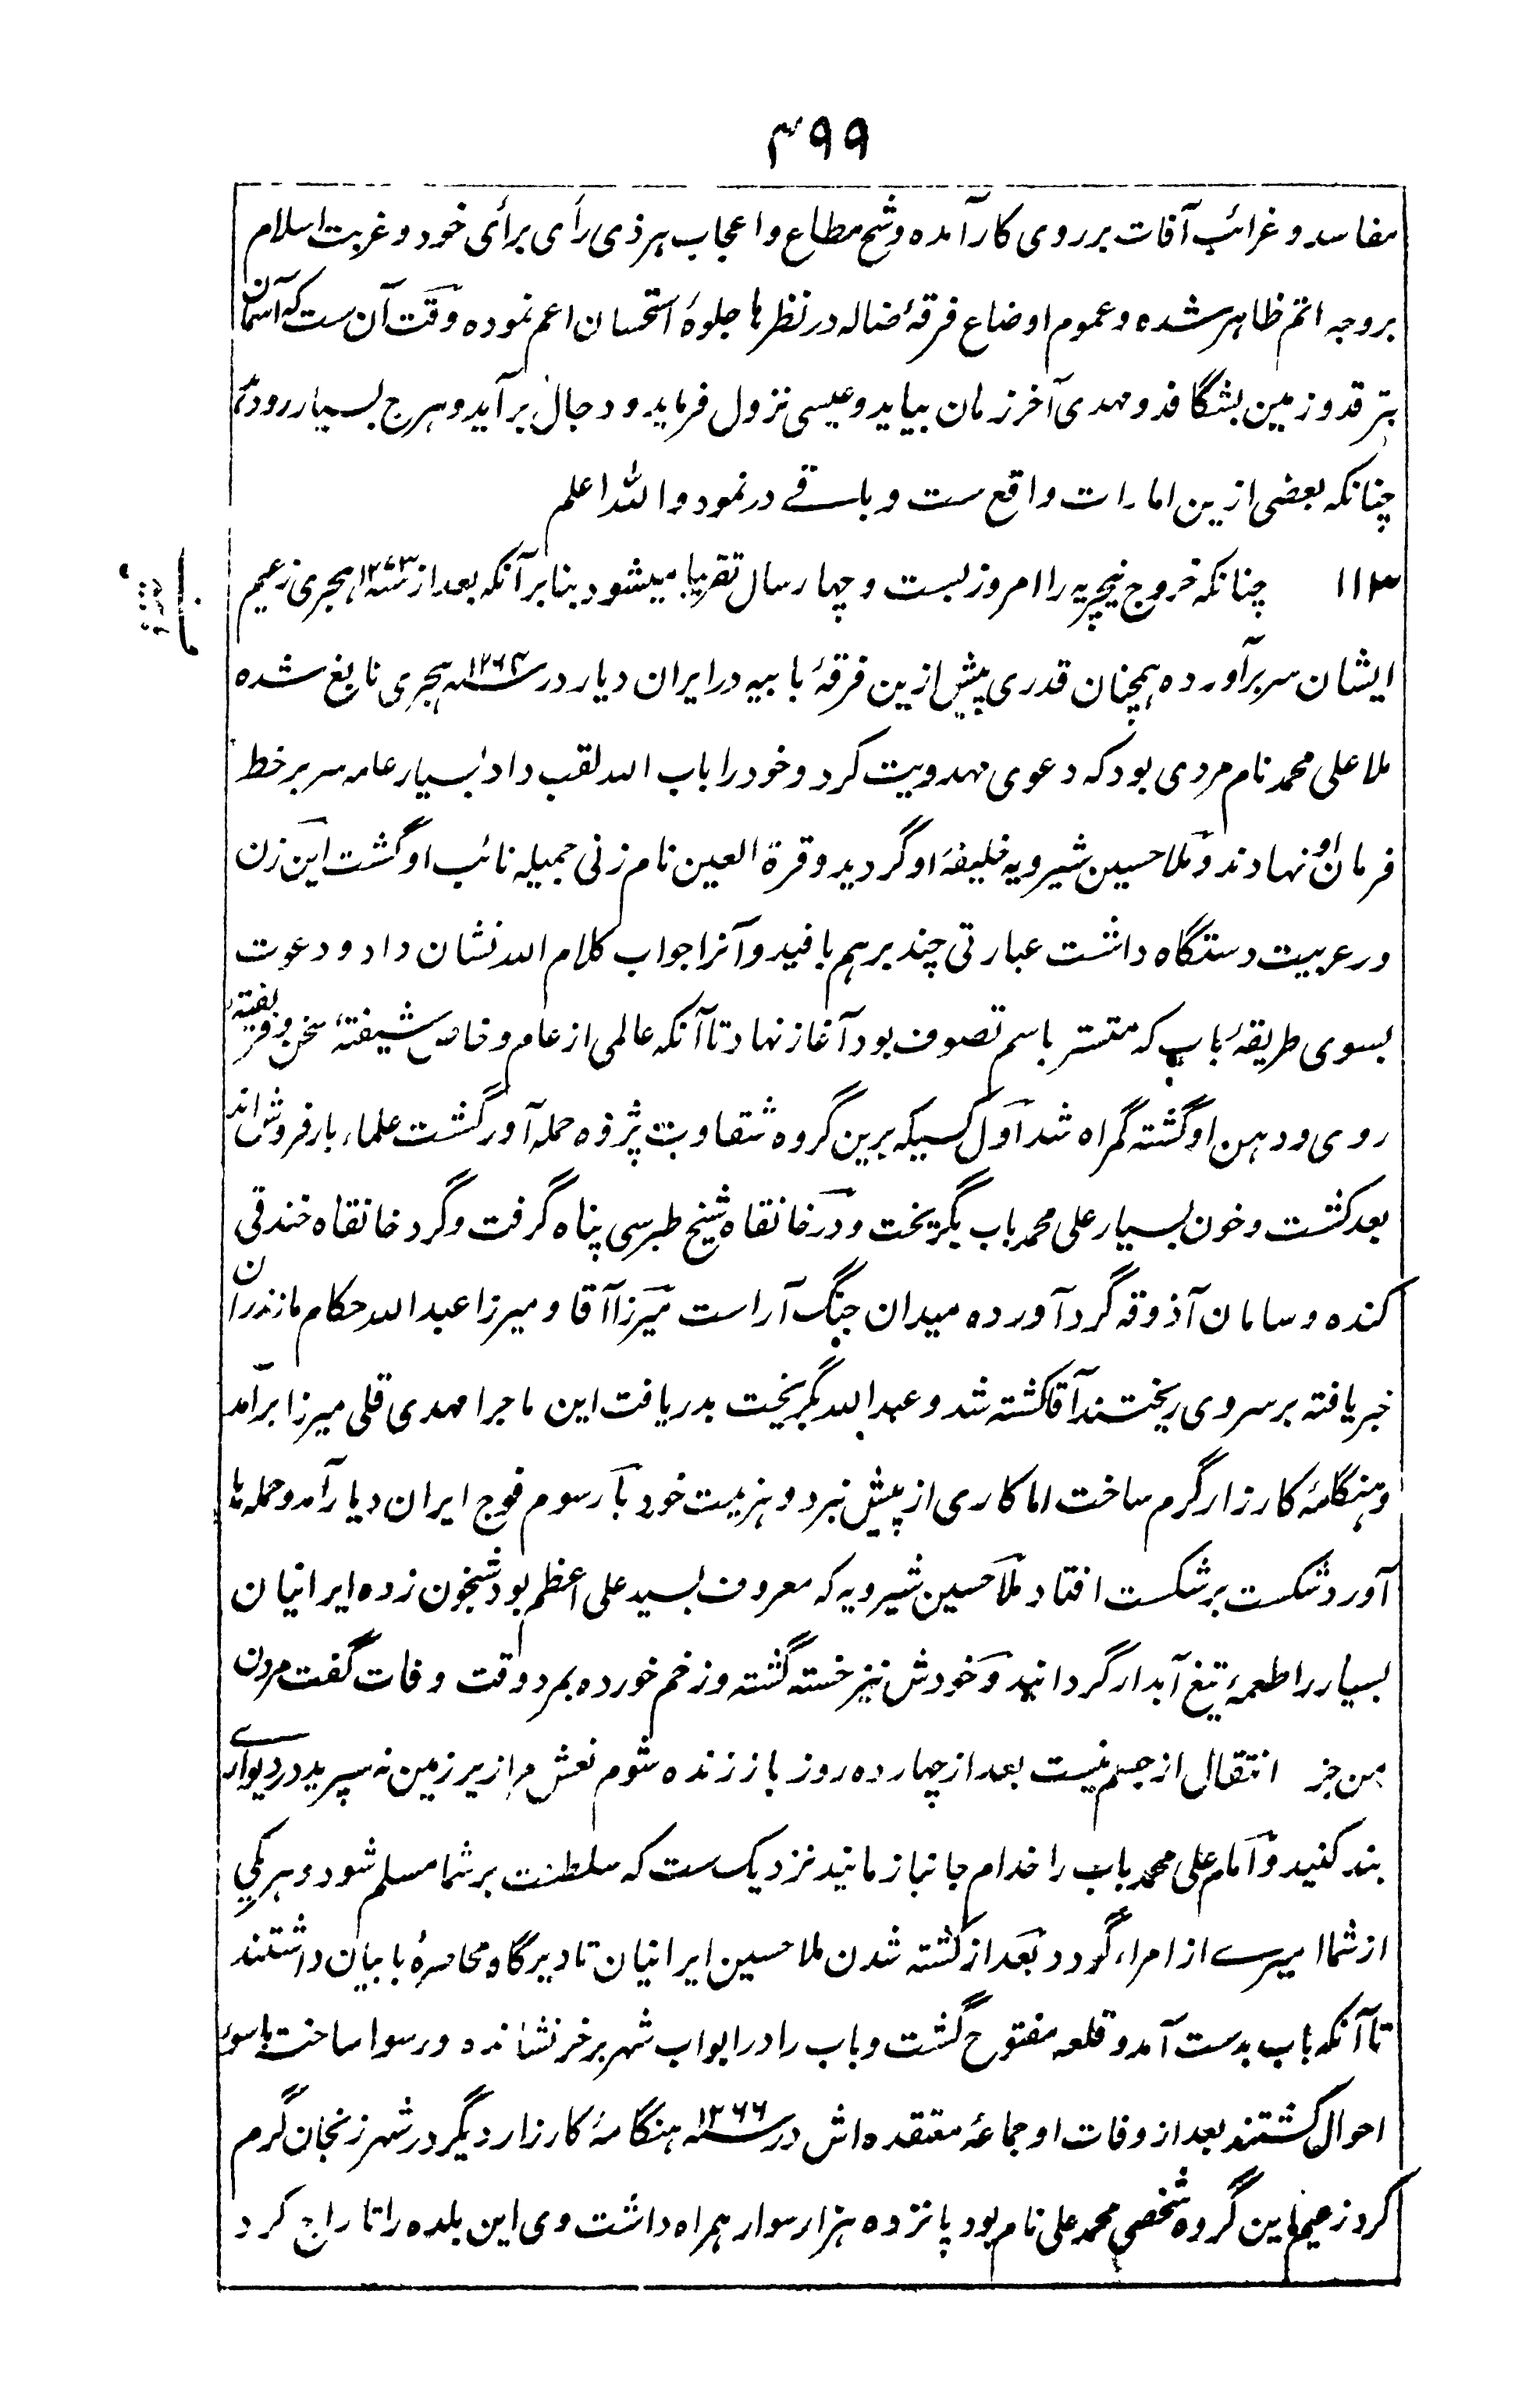 ۴۹۹
مفاسد و غرائب آفات بر روی کار آمده و شح مطاع و اعجاب هر ذی رأی برأی خود و غربت اسلام
بروجه اتم ظاهر شده و عموم اوضاع فرقهٔ ضاله در نظرها جلوهٔ استحسان اعم نموده وقت آن ست که آسمان
بترقد و زمین بشگافد و مهدی آخر زمان بیاید و عیسی نزول فرماید و دجال برآید و هرج بسیار رود
چنانکه بعضی ازین امارات واقع ست و باقے در نمود والله اعلم
۱۱۳ چنانکه خروج نیچریه را امروز بست و چهار سال تقریبا میشود بنابر آنکه بعد از سنه ۱۲۷۳ هجری زعیم
ایشان سر برآورده همچنان قدری پیش ازین فرقهٔ بابیه در ایران دیار در سنه ۱۲۶۴ هجری نابغ شده
ملا علی محمد نام مردی بود که دعوی مهدویت کرد و خود را باب الله لقب داد بسیار عامه سر بر خط
فرمان او نهادند و ملا حسین شیرویه خلیفهٔ او گردید و قرة العین نام زنی جمیله نائب او گشت این زن
در عربیت دستگاه داشت عبارتی چند برهم بافید و آنرا جواب کلام الله نشان داد و دعوت
بسوی طریقهٔ باب که متستر باسم تصوف بود آغاز نهاد تا آنکه عالمی از عام و خاص شیفتهٔ سخن و فریفتهٔ
روی و دهن او گشته گمراه شد اول کسیکه برین گروه شقاوت پژوه حمله آور گشت علماء بارفروش اند
بعد کشت و خون بسیار علی محمد باب بگریخت و در خانقاه شیخ طبرسی پناه گرفت و گرد خانقاه خندقی
کنده و سامان آذوقه گرد آورده میدان جنگ آراست میرزا آقا و میرزا عبدالله حکام مازندران
خبر یافته بر سر وی ریختند آقا کشته شد و عبدالله بگریخت بدریافت این ماجرا مهدی قلی میرزا برآمد
و هنگامهٔ کارزار گرم ساخت اما کاری از پیش نبرد و هزیمت خورد بار سوم فوج ایران دیار آمد و حمله ها
آورد شکست بر شکست افتاد ملا حسین شیرویه که معروف بسید علی اعظم بود شبخون زده ایرانیان
بسیار را طعمهٔ تیغ آبدار گردانید و خودش نیز خسته گشته و زخم خورده بمرد وقت وفات گفت مردن
من جز انتقال از جسم نیست بعد از چهارده روز باز زنده شوم نعش مرا زیر زمین نه سپرید در دیوارے
بند کنید و امام علی محمد باب را خدام جانباز مانید نزدیک ست که سلطنت بر شما مسلم شود و هر یکی
از شما امیرے از امراء گردد بعد از کشته شدن ملا حسین ایرانیان تا دیر گاه محاصرهٔ بابیان داشتند
تا آنکه باب بدست آمد و قلعه مفتوح گشت و باب را در ابواب شهر بر خر نشانده و رسوا ساخت باسوء
احوال کشتند بعد از وفات او جماعهٔ معتقده اش در سنه ۱۲۶۶ هنگامهٔ کارزار دیگر در شهر زنجان گرم
کرد زعیم این گروه شخصی محمد علی نام بود پانزده هزار سوار همراه داشت وی این بلده را تاراج کرد